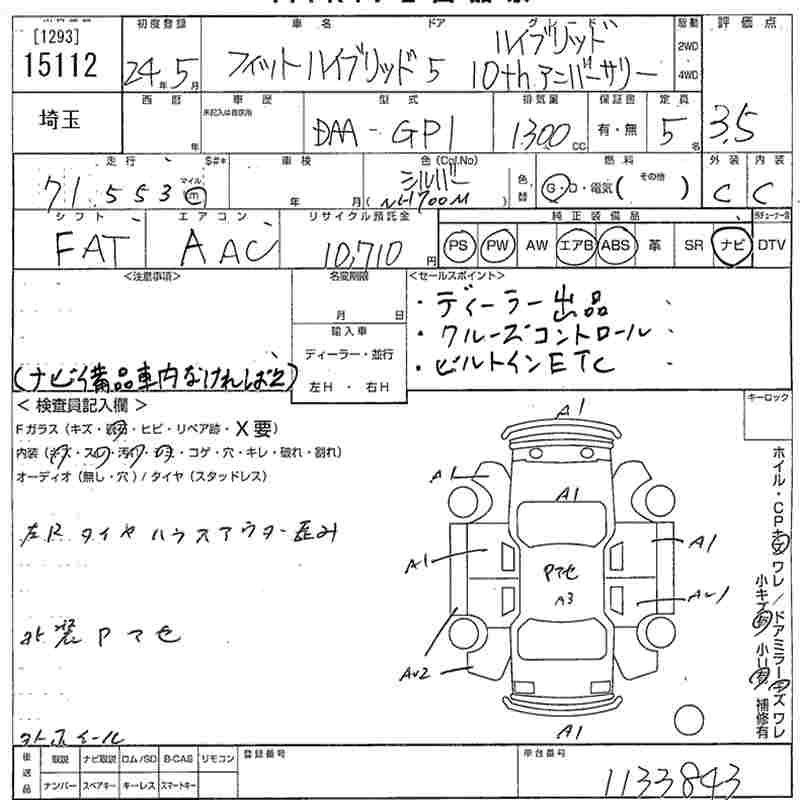 [1293]
15112
初度登録
24年5月
車名 ドア グレード
フィットハイブリッド 5 ハイブリッド
10thアニバーサリー
駆動
2WD
4WD
評価点
3.5
埼玉
西暦
年
車歴
未記入は自家用
型式
DAA-GP1
排気量
1300cc
保証書
有・無
定員
5名
走行
71,553 マイル m
S#*
車検
年 月
色(Col.No)
シルバー
(NH700M)
色替
燃料
G・D・電気( その他 )
外装
C
内装
C
シフト
FAT
エアコン
AAC
リサイクル預託金
10,710円
純正装備品
PS PW AW エアB ABS 革 SR ナビ DTV
<注意事項>
(ナビ備品車内なければ乙)
名変期限
月 日
輸入車
ディーラー・並行
左H ・ 右H
<セールスポイント>
・ディーラー出品
・クルーズコントロール
・ビルトインETC
キーロック
<検査員記入欄>
Fガラス(キズ・飛石・ヒビ・リペア跡・X要)
内装(キズ・スレ・汚れ・コゲ・穴・キレ・破れ・割れ)
オーディオ(無し・穴)/タイヤ(スタッドレス)
左R タイヤハウスアウター歪み
外装Pマセ
外ホイール
A1
A1
A1
A1
A1
Pマセ
A3
AU1
AU2
A1
ホイール・CPキズワレ/ドアミラーキズワレ
小キズ有 小U有 補修有
後送品
取説 ナビ取説 ロム/SD B-CAS リモコン
ナンバー スペアキー キーレス スマートキー
登録番号
車台番号
1133843